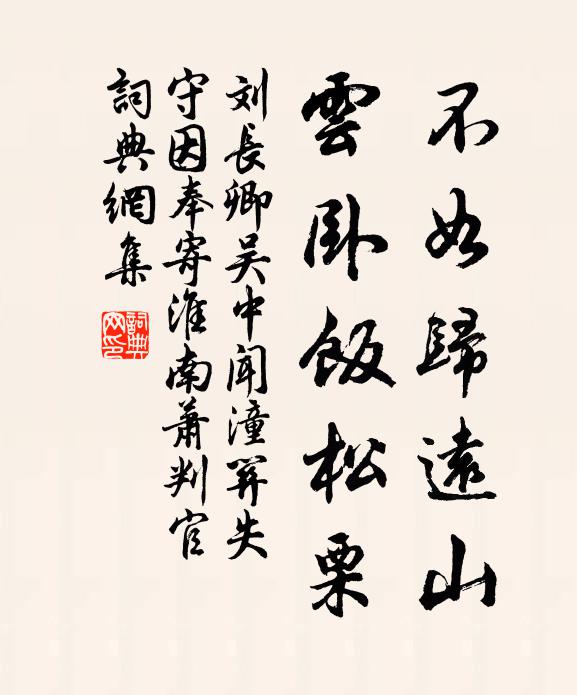 不如歸遠山
雲臥飯松栗
刘長卿吴中闻潼関失
守因奉寄淮南蕭判官
詞典網集
詞典
网印